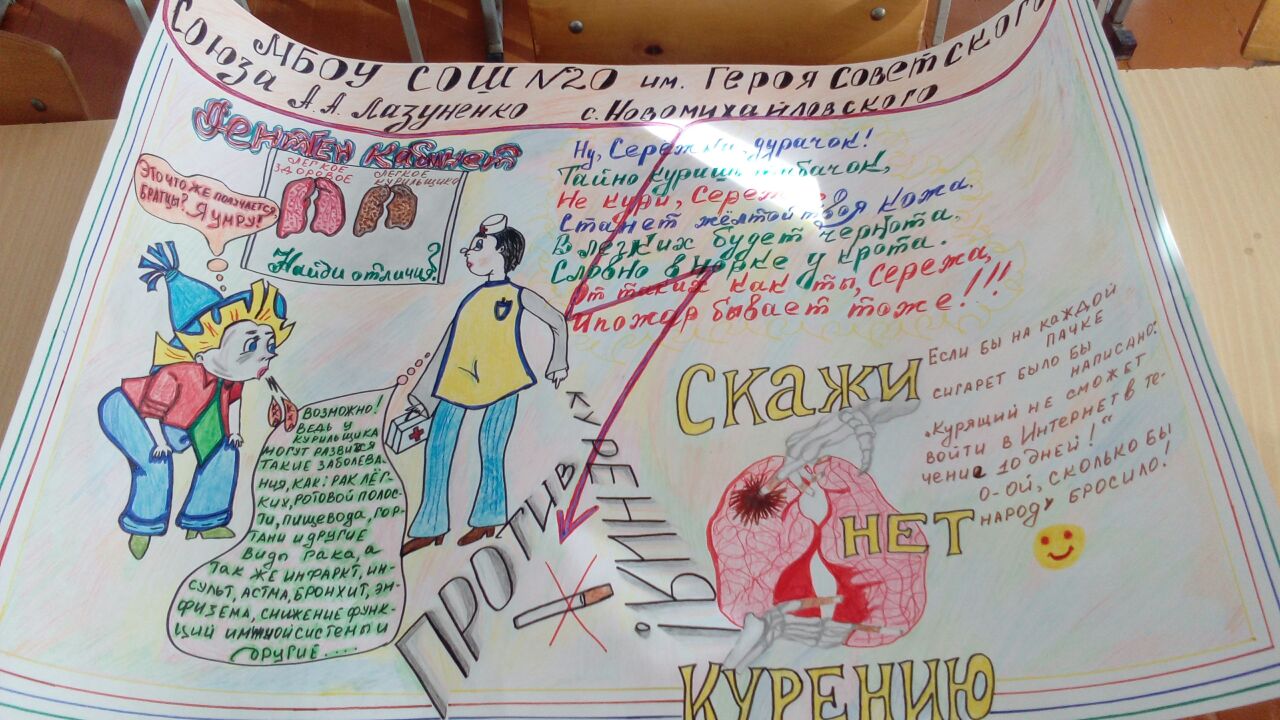 МБОУ СОШ №20 им. Героя Советского
Союза А.А. Лазуненко с. Новомихайловского
Рентген кабинет
ЛЕГКОЕ ЗДОРОВОЕ
ЛЕГКОЕ КУРИЛЬЩИКА
Найди отличия?
ЭТО ЧТО, ЖЕ ПОЛУЧАЕТСЯ,
БРАТЦЫ? Я УМРУ!
ВОЗМОЖНО!
ВЕДЬ У
КУРИЛЬЩИКА
МОГУТ РАЗВИТСЯ
ТАКИЕ ЗАБОЛЕВА-
НИЯ, КАК: РАК ЛЁГ-
КИХ, РОТОВОЙ ПОЛОС-
ТИ, ПИЩЕВОДА, ГОР-
ТАНИ И ДРУГИЕ
ВИДЫ РАКА, А
ТАК ЖЕ ИНФАРКТ, ИН-
СУЛЬТ, АСТМА, БРОНХИТ, ЭМ-
ФИЗЕМА, СНИЖЕНИЕ ФУНК-
ЦИЙ СИСТЕМЫ И
ДРУГИЕ....
Ну, Сережка, дурачок!
Тайно куришь табачок,
Не кури, Сережа
Станет жёлтой твоя кожа.
В легких будет чернота.
Словно в норке у крота.
От таких как ты, Сережа,
И пожар бывает тоже!!!
ПРОТИВ
КУРЕНИЯ!
СКАЖИ
НЕТ
КУРЕНИЮ
ЕСЛИ БЫ НА КАЖДОЙ
ПАЧКЕ
СИГАРЕТ БЫЛО БЫ
НАПИСАНО:
„КУРЯЩИЙ НЕ СМОЖЕТ
ВОЙТИ В ИНТЕРНЕТ В ТЕ-
ЧЕНИЕ 10 ДНЕЙ!"
О-ОЙ, СКОЛЬКО БЫ
НАРОДУ БРОСИЛО!